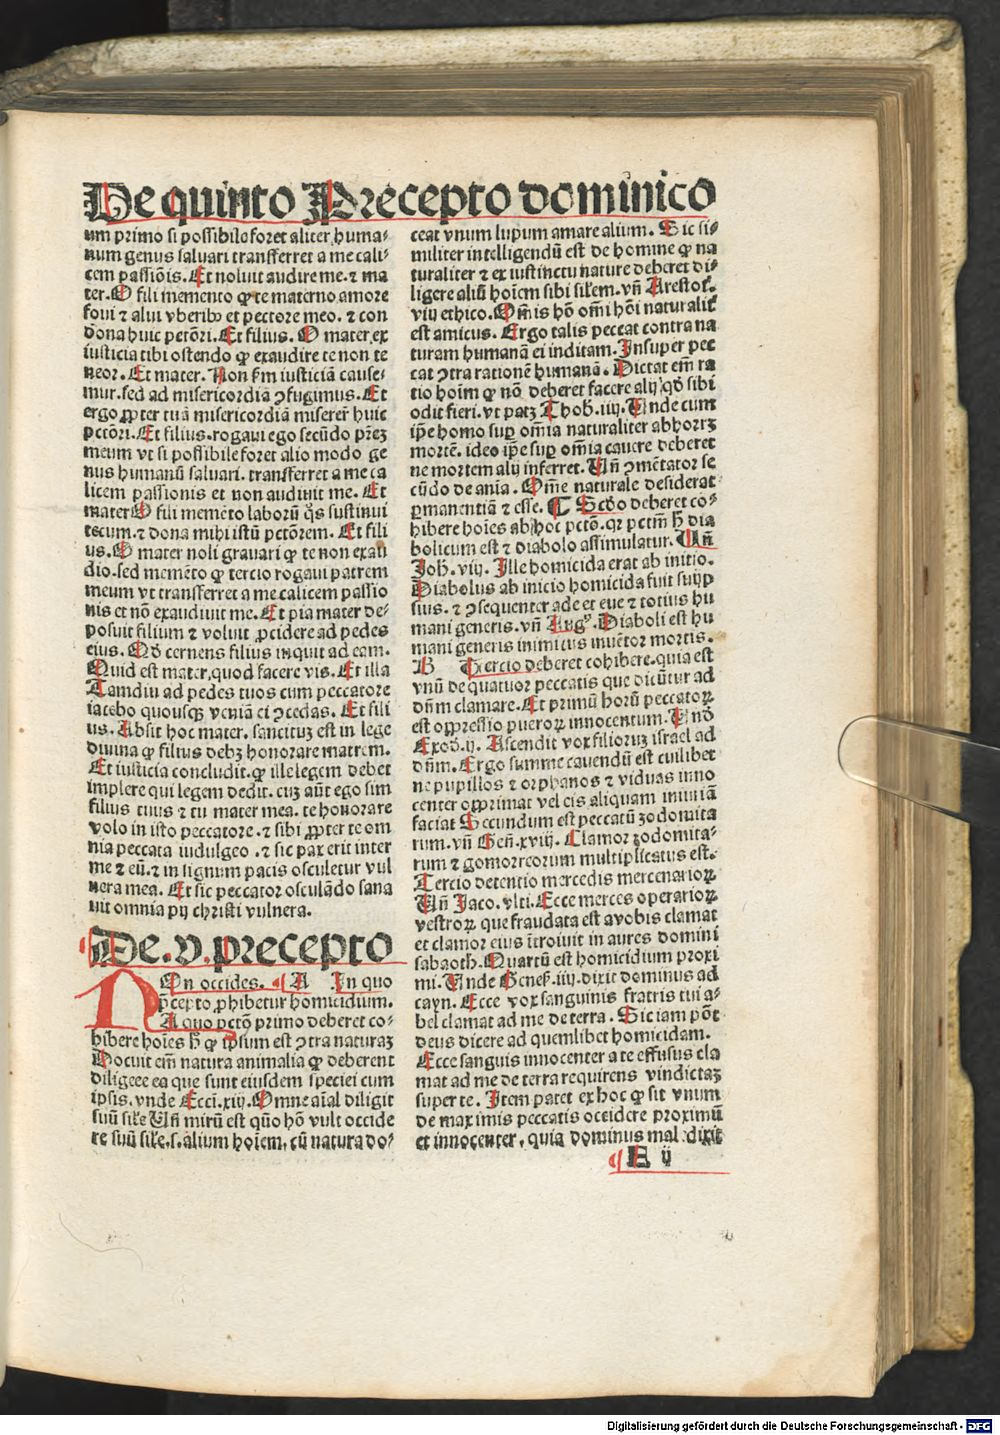 De quinto Precepto dominico
um primo si possibile foret aliter huma⸗
num genus saluari transferret a me cali⸗
cem passiōis. Et noluit audire me. ⁊ ma
ter. O fili memento ꝙ te materno amore
foui ⁊ alui vberibꝰ et pectore meo. ⁊ con
dona huic petōri. Et filius. O mater ex
iusticia tibi ostendo ꝙ exaudire te non te
neor. Et mater. Non ẜm iusticiā cause⸗
mur. sed ad misericordiā ↄfugimus. Et
ergo ꝓpter tuā misericordiā miserer̄ huic
pctōri. Et filius. rogaui ego secūdo pr̄eꝫ
meum vt si possibile foret alio modo ge
nus humanū saluari. transferret a me ca
licem passionis et non audiuit me. Et
mater O fili memēto laborū q̄s sustinui
tecum. ⁊ dona mihi istū pctōrem. Et fili
us. O mater noli grauari ꝙ te non exau
dio. sed memēto ꝙ tercio rogaui patrem
meum vt transferret a me calicem passio
nis et nō exaudiuit me. Et pia mater de⸗
posuit filium ⁊ voluit ꝓcidere ad pedes
eius. Qd̄ cernens filius inquit ad eam.
Quid est mater, quod facere vis. Et illa
Tamdiu ad pedes tuos cum peccatore
iacebo quousqꝫ veniā ei ↄcedas. Et fili
us. Absit hoc mater. sancituꝫ est in lege
diuina ꝙ filius debꝫ honorare matrem.
Et iusticia concludit. ꝙ ille legem debet
implere qui legem dedit. cuꝫ aūt ego sim
filius tuus ⁊ tu mater mea. te honorare
volo in isto peccatore. ⁊ sibi ꝓpter te om
nia peccata indulgeo. ⁊ sic pax erit inter
me ⁊ eū. ⁊ in signum pacis osculetur vul
nera mea. Et sic peccator osculādo sana
uit omnia pij christi vulnera.
De. v. precepto
NOn occides. A In quo
p̄cepto ꝓhibetur homicidium.
A quo pctō primo deberet co⸗
hibere hoīes ꝙ ipsum est ↄtra naturaꝫ
Docuit em̄ natura animalia ꝙ deberent
diligere ea que sunt eiusdem speciei cum
ipsis. vnde Ecci. xiij. Omne aīal diligit
suū sil̄e Vn̄ mirū est quō hō vult occide
re suū sil̄e. s. alium hoīem, cū natura do⸗
ceat vnum lupum amare alium. Sic si⸗
militer intelligendū est de homine ꝙ na
turaliter ⁊ ex iustinctu nature deberet di⸗
ligere aliū hoīem sibi sil̄em. vn̄ Arestot̄.
viij ethico. Om̄is hō om̄i hōi naturalit̄
est amicus. Ergo talis peccat contra na
turam humanā ei inditam. Insuper pec
cat ↄtra rationē humanā. Dictat em̄ ra
tio hoīm ꝙ nō deberet facere alij qd̄ sibi
odit fieri. vt patꝫ Thob̄. iiij. Unde cum
ip̄e homo suꝑ om̄ia naturaliter abhorrꝫ
mortē. ideo ip̄e suꝑ om̄ia cauere deberet
ne mortem alij inferret. Un̄ ↄmētator se
cūdo de aīa. Om̄e naturale desiderat
ꝑmanentiā ⁊ esse. ¶ Scd̄o deberet co⸗
hibere hoīes ab hoc pctō. qꝛ pctm̄ h̄ dia
bolicum est ⁊ diabolo assimulatur. Un̄
Joh̄. viij. Ille homicida erat ab initio.
Diabolus ab inicio homicida fuit suijp
sius. ⁊ ↄsequenter ade et eue ⁊ totius hu
mani generis. vn̄ Augꝰ. Diaboli est hu
mani generis inimicus inuētor mortis.
B Tercio deberet cohibere. quia est
vnū de quatuor peccatis que dicūtur ad
dn̄m clamare. Et primū horū peccatoꝝ
est oppressio pueroꝝ innocentum. Unō
Exod̄. ij. Ascendit vox filioruꝫ israel ad
dn̄m. Ergo summe cauendū est cuilibet
ne pupillos ⁊ orphanos ⁊ viduas inno
center opprimat vel eis aliquam iniuriā
faciat Secundum est peccatū ʒodomita
rum. vn̄ Gen̄. xviij. Clamor ʒodomita⸗
rum ⁊ gomorreorum multiplicatus est.
Tercio detentio mercedis mercenarioꝝ
Un̄ Jaco. vlti. Ecce merces operarioꝝ
vestroꝝ que fraudata est a vobis clamat
et clamor eius ītroiuit in aures domini
sabaoth. Quartū est homicidium proxi
mi. Unde Genes̄. iiij. dixit dominus ad
cayn. Ecce vox sanguinis fratris tui a⸗
bel clamat ad me de terra. Sic iam pōt
deus dicere ad quemlibet homicidam.
Ecce sanguis innocenter a te effusus cla
mat ad me de terra requirens vindictaꝫ
super te. Item patet ex hoc ꝙ sit vnum
de maximis peccatis occidere proximū
et innocenter, quia dominus mal dixit
E ij
Digitalisierung gefördert durch die Deutsche Forschungsgemeinschaft - DFG